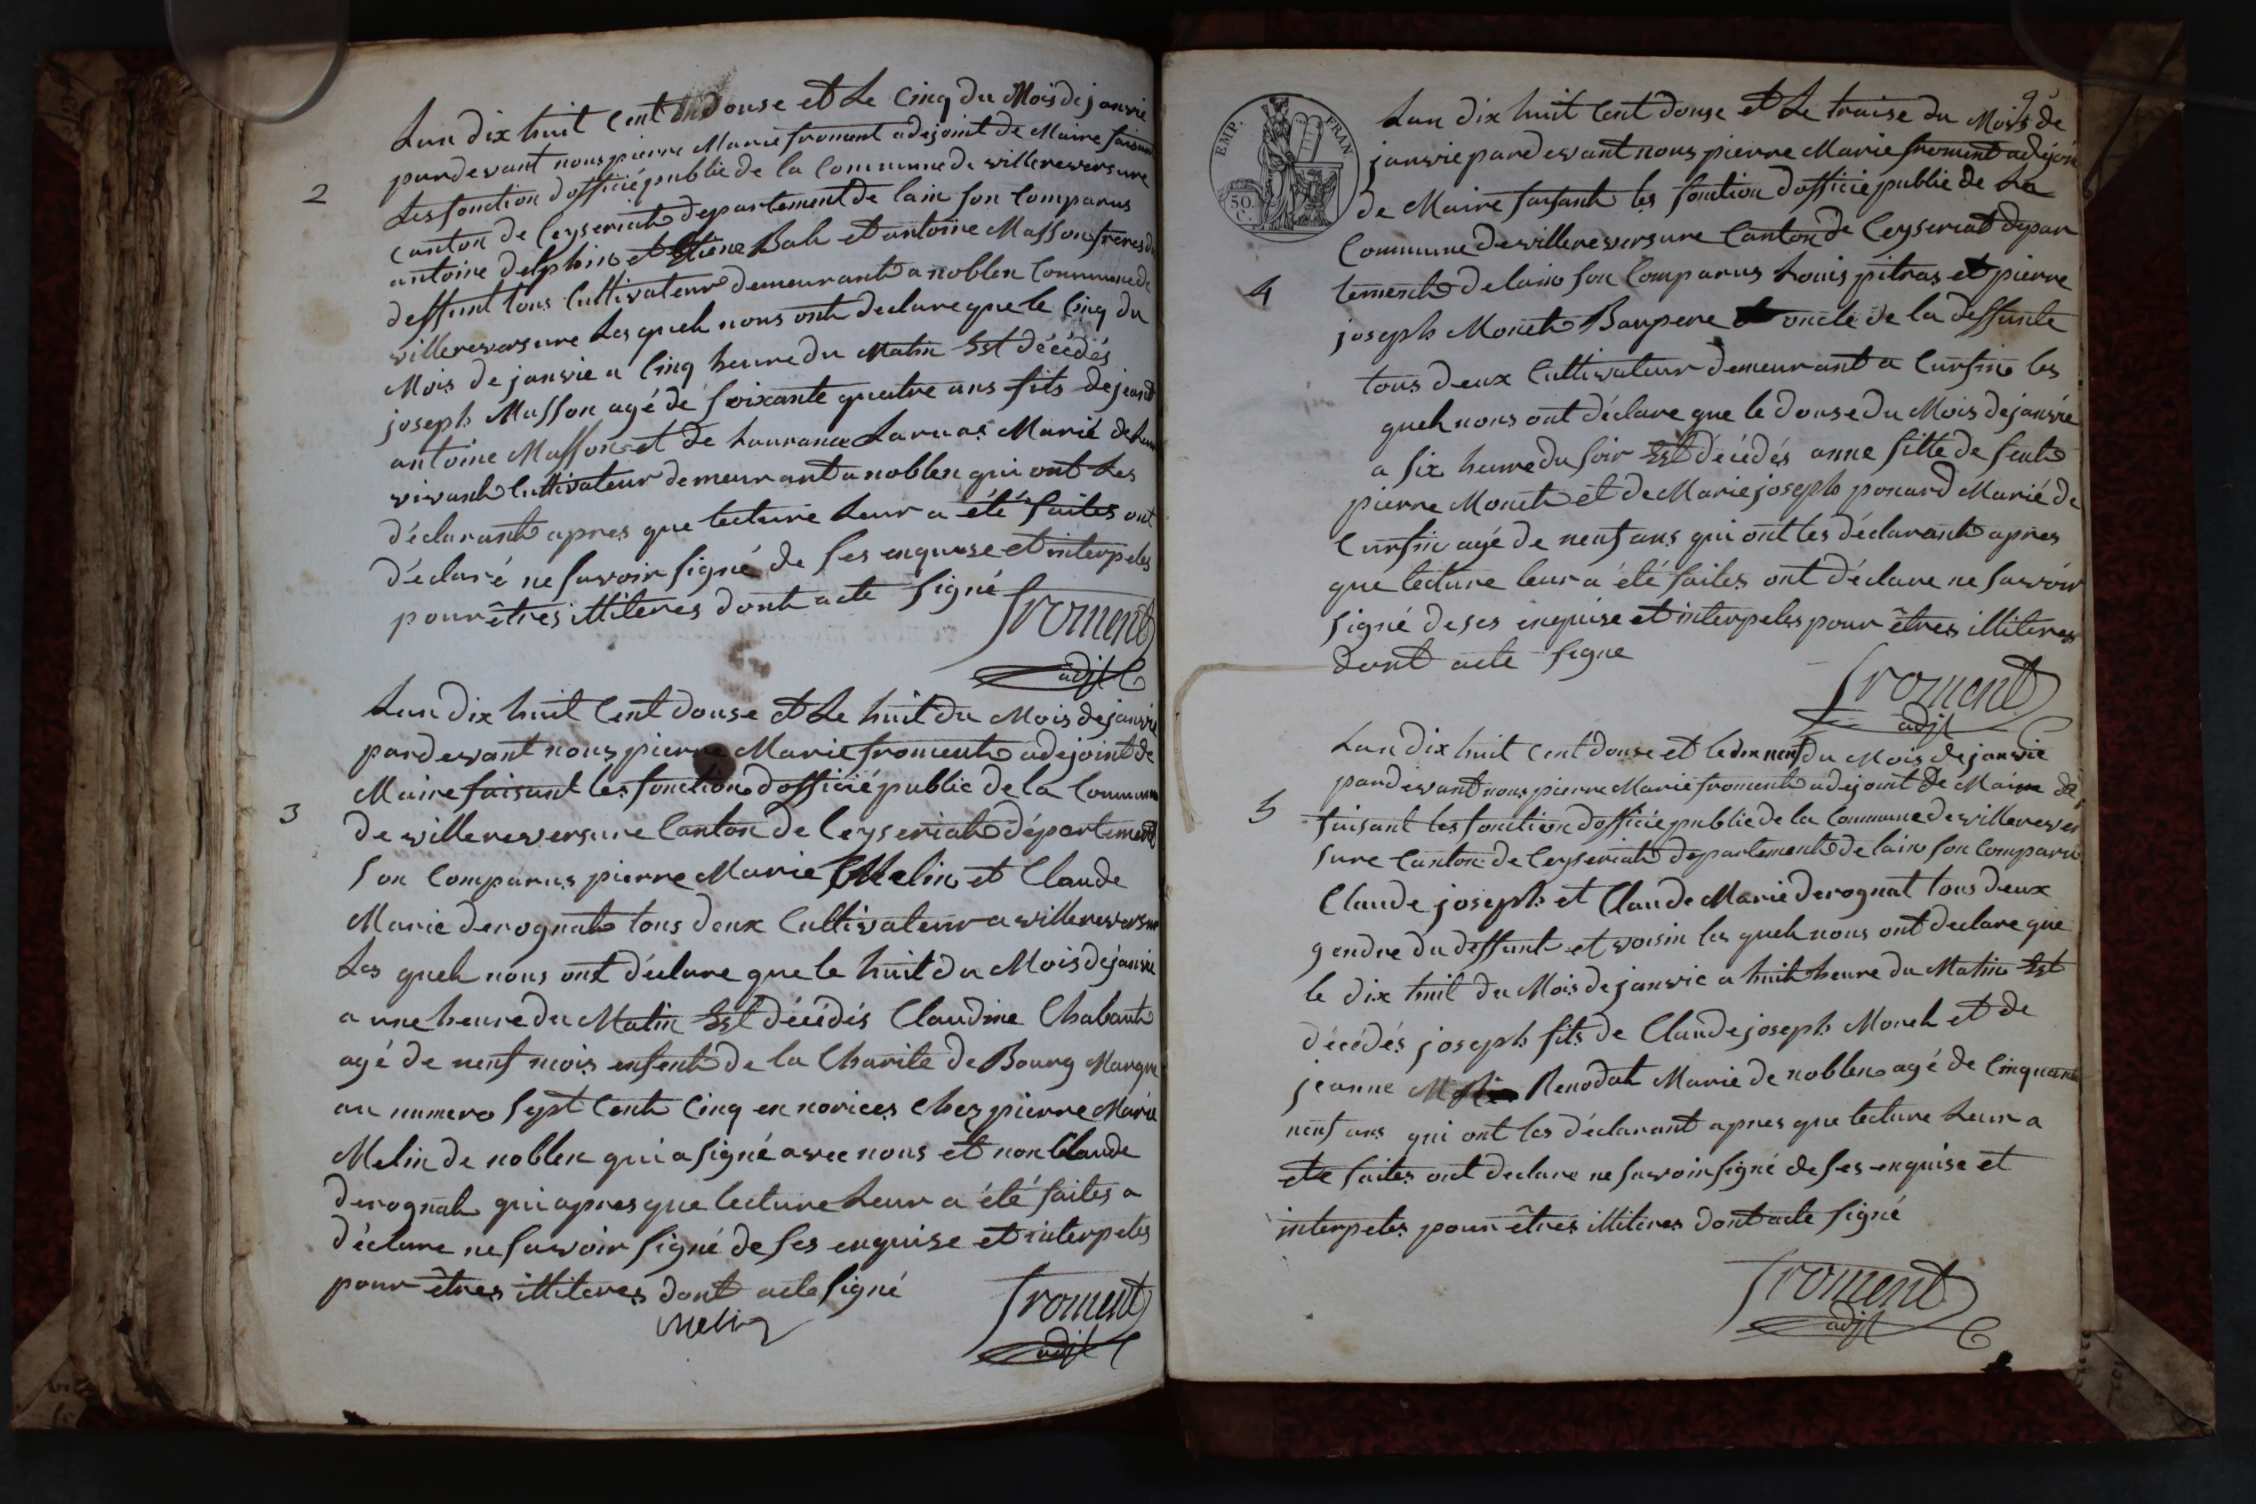 Lan dix huit Cent douse et Le Cinq du Mois de janvie
pardevant nous pierre Marie froment adejoint de Maire faisant
2
Les fonction dofficié publie de la Commune de villereversure
Canton de Ceyseriat departement de lain son Comparus
antoine delphin et Etiene Bah et antoine Masson freres du
deffunt tous Cultivateur demeurant a noblen Commune de
villereversure Les quels nous ont declare que le Cinq du
Mois de janvie a Cinq heure du Matin Est décédés
joseph Masson agé de soixante quatre ans fils de jean
antoine Masson et de Laurance Maria
vivant Cultivateur demeurant a noblen qui ont Les
déclarant apres que lecture Leur a été faites ont
déclaré ne savoir signé de ses enquise et interpeles
pour êtres illiteres dont acte signé
froment
adjt
Lan dix huit Cent douse et Le huit du Mois de janvie
pardevant nous pierre Marie froment adejoint de
Maire faisant les fonction dofficié public de la Commune
3
de villereversure Canton de Ceyseriat département
son Comparus pierre Marie Melin et Claude
Marie derognat tous deux Cultivateur a villereversure
Les quels nous ont déclare que le huit du Mois de janvie
a une heure du Matin Est décédés Claudine Chabant
agé de neuf mois enfent de la Charite de Bourg Marque
au numero sept Cent Cinq en norices chez pierre Marie
Melin de noblen qui a signé avec nous et non Claude
derognat qui apres que lecture Leur a été faites a
déclare ne savoir signé de ses enquise et interpeles
pour êtres illiteres dont acte signé
Melin
froment
adjt
9
EMP. FRAN
50. C.
Lan dix huit Cent douse et Le traise du Mois de
janvie pardevant nous pierre Marie froment adejoin
de Maire faisant les fonction dofficié publie de La
Commune de villereversure Canton de Ceyseriat depar
4
tement de lain son Comparus Louis pitras et pierre
joseph Monet Baupere oncle de la deffunte
tous deux Cultivateur demeurant a Cursin les
quels nous ont déclare que le douse du Mois de janvie
a six heure du soir Est décédés anne fille de feut
pierre Monet et de Marie joseph ponard Marié de
Cursin agé de neuf ans qui ont les déclarant apres
que lecture leur a été faites ont déclare ne savoir
signé de ses enquise et interpeles pour êtres illiteres
dont acte signe
froment
adjt
Lan dix huit Cent douse et le dix neuf du Mois de janvie
pardevant nous pierre Marie froment adejoint de Maire
5
faisant les fonction dofficié publie de la Commune de villerever
sure Canton de Ceyseriat departement de lain son Comparu
Claude joseph et Claude Marie derognat tous deux
gendre du deffunt et voisin les quels nous ont declare que
le dix huit du Mois de janvie a huit heure du Matin Est
décédés joseph fils de Claude joseph Monet et de
jeanne Renodat Marié de noblen agé de Cinquante
neuf ans qui ont les déclarant apres que lecture Leur a
été faites ont declare ne savoir signé de ses enquise et
interpeles pour êtres illiteres dont acte signé
froment
adjt